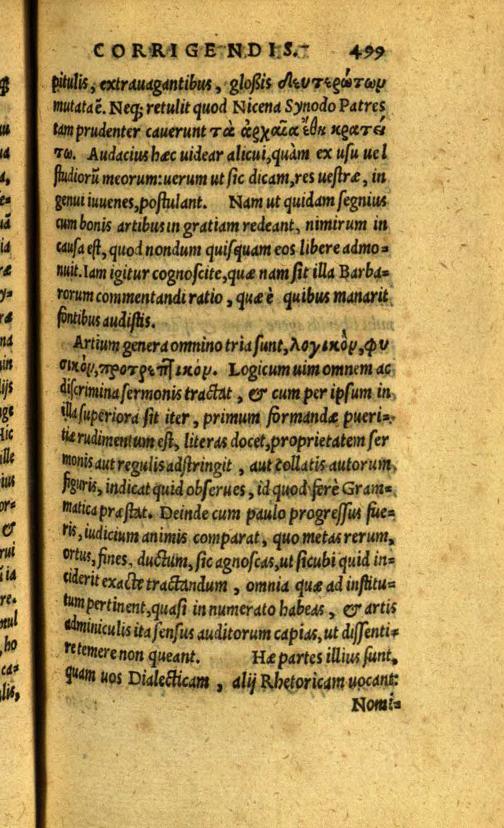 CORRIGENDIS. 499
pitulis, extrauagantibus, gloßis δευτερώτωμ
mutata ē. Neq; retulit quod Nicena Synodo Patres
tam prudenter cauerunt τὰ ἀρχαῖα ἔθη κρατεί
τω. Audacius hæc uidear alicui, quàm ex usu uel
studiorū meorum: uerum ut sic dicam, res uestræ, in
genui iuuenes, postulant. Nam ut quidam segnius
cum bonis artibus in gratiam redeant, nimirum in
causa est, quod nondum quisquam eos libere admo-
nuit. Iam igitur cognoscite, quæ nam sit illa Barba-
rorum commentandi ratio, quæ è quibus manarit
fontibus audistis.
Artium genera omnino tria sunt, λογικὸμ, φυ
σικόμ, προτρεπτικόμ. Logicum uim omnem ac
discrimina sermonis tractat, & cum per ipsum in
illa superiora sit iter, primum formandæ pueri-
tiæ rudimentum est, literas docet, proprietatem ser
monis aut regulis adstringit, aut collatis autorum
figuris, indicat quid obserues, id quod ferè Gram-
matica præstat. Deinde cum paulo progressus fue-
ris, iudicium animis comparat, quo metas rerum,
ortus, fines, ductum, sic agnoscas, ut sicubi quid in-
ciderit exacte tractandum, omnia quæ ad institu-
tum pertinent, quasi in numerato habeas, & artis
adminiculis ita sensus auditorum capias, ut dissenti-
re temere non queant. Hæ partes illius sunt,
quam uos Dialecticam, alij Rhetoricam uocant:
Nomi-